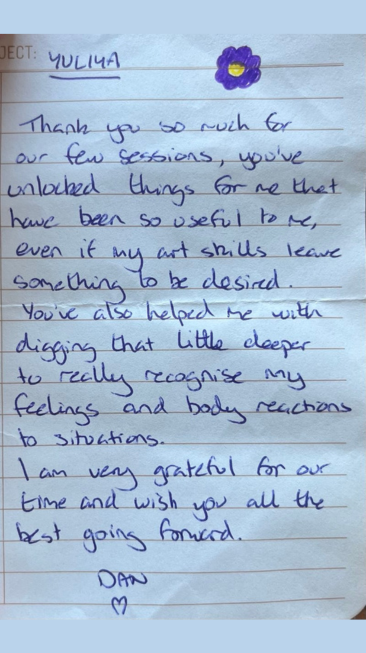 JECT: YULIYA
Thank you so much for
our few sessions, you've
unlocked things for me that
have been so useful to me,
even if my art skills leave
something to be desired.
You've also helped me with
digging that little deeper
to really recognise my
feelings and body reactions
to situations.
I am very grateful for our
time and wish you all the
best going forward.
DAN